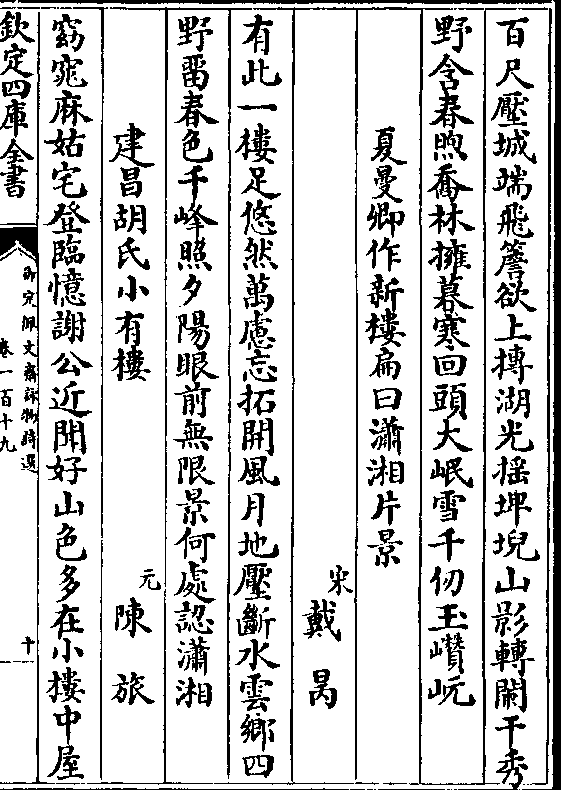 百尺壓城端飛簷欲上摶湖光揺埤堄山影轉闌干秀
野含春煦喬林擁暮寒回頭大岷雪千仞玉巑岏
夏曼卿作新樓扁曰瀟湘片景
宋戴昺
有此一樓足悠然萬慮忘拓開風月地壓斷水雲鄉四
野畱春色千峰照夕陽眼前無限景何處認瀟湘
建昌胡氏小有樓
元陳旅
窈窕麻姑宅登臨憶謝公近聞好山色多在小樓中屋
欽定四庫全書
御定佩文齋詠物詩選
卷一百十九
十